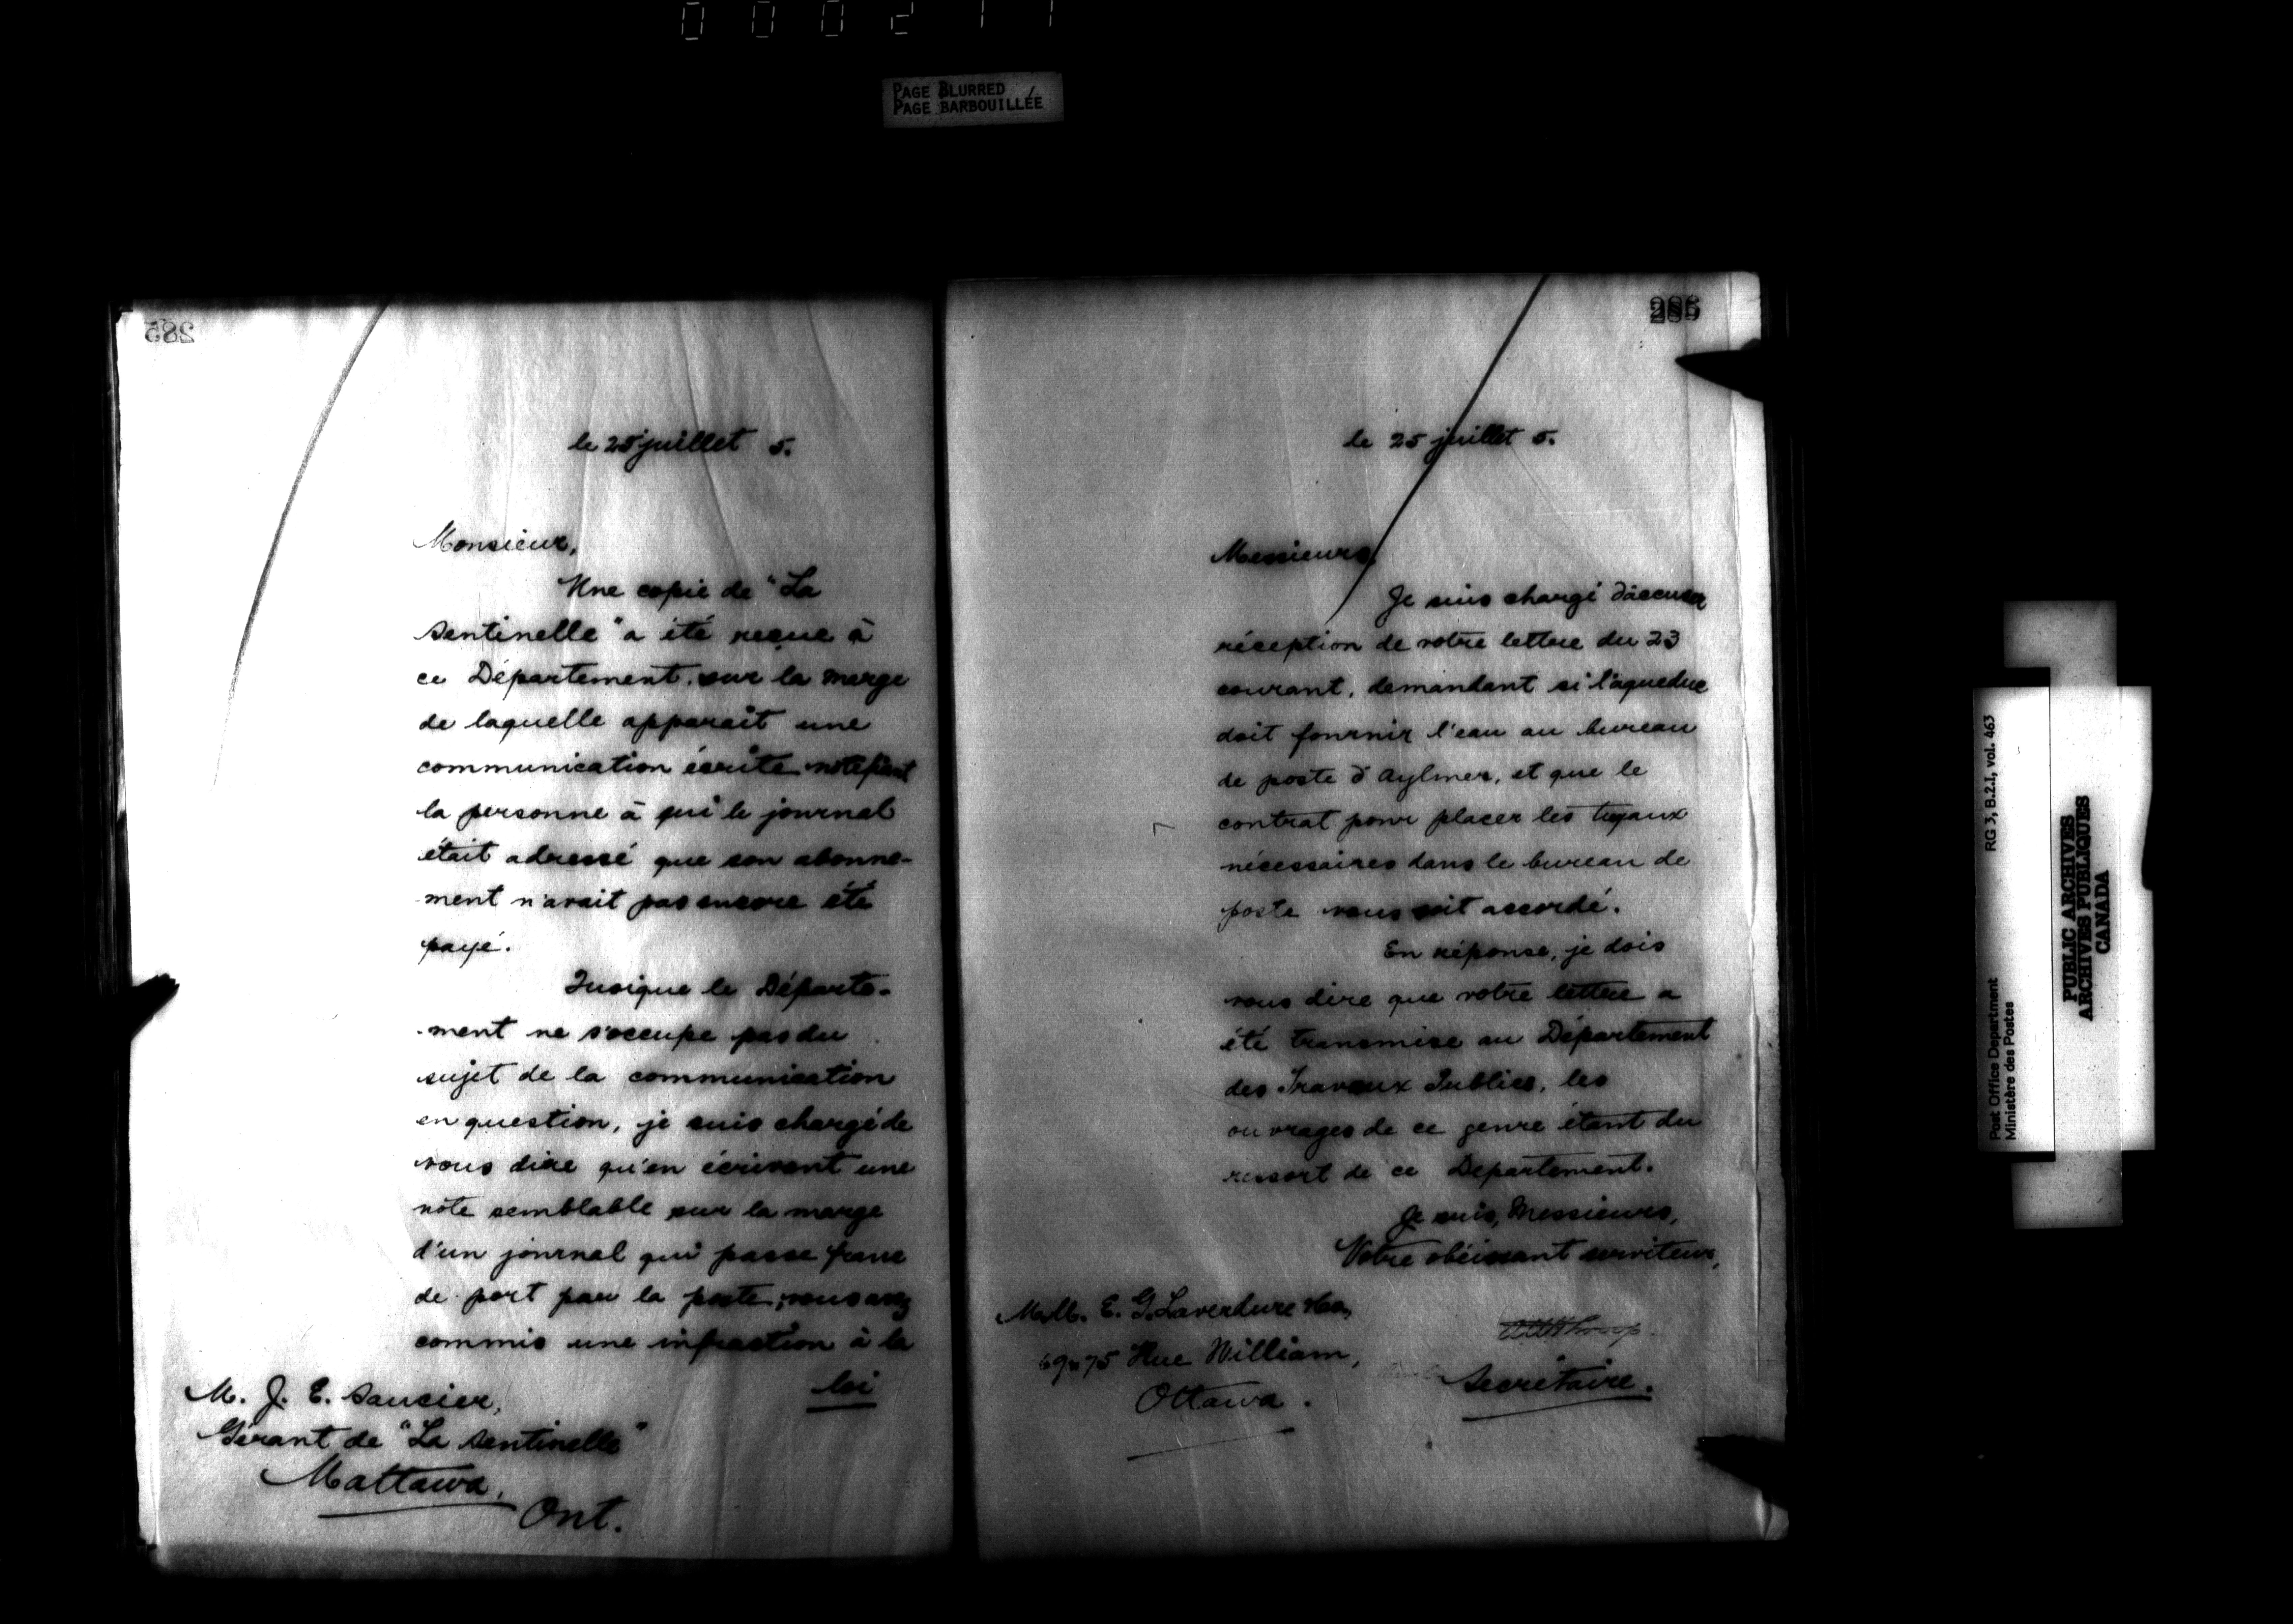 000211
PAGE BLURRED
PAGE BARBOUILLÉE
285
le 25 juillet 5.
Monsieur,
Une copie de "La
Sentinelle" a été reçue à
ce Département, sur la marge
de laquelle apparait une
communication écrite notifiant
la personne à qui le journal
était adressé que son abonne-
-ment n'avait pas encore été
payé.
Quoique le Départe-
-ment ne s'occupe pas du
sujet de la communication
en question, je suis chargé de
vous dire qu'en écrivant une
note semblable sur la marge
d'un journal qui passe franc
de port par la poste, vous avez
commis une infraction à la
loi
M. J. E. Saucier,
Gérant de "La Sentinelle"
Mattawa,
Ont.
286
le 25 juillet 5.
Messieurs,
Je suis chargé d'accuser
réception de votre lettre du 23
courant, demandant si l'aqueduc
doit fournir l'eau au bureau
de poste d'Aylmer, et que le
contrat pour placer les tuyaux
nécessaires dans le bureau de
poste vous soit accordé.
En réponse, je dois
vous dire que votre lettre a
été transmise au Département
des Travaux Publics, les
ouvrages de ce genre étant du
ressort de ce Departement.
Je suis, Messieurs,
Votre obéissant serviteur,
MM. E. G. Laverdure &Co,
69 75 Rue William,
Ottawa.
Secrétaire.
RG 3, B.2.I, vol. 463
Post Office Department
Ministère des Postes
PUBLIC ARCHIVES
ARCHIVES PUBLIQUES
CANADA